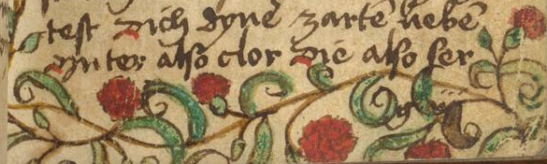 test dich dyne zarte liebe
Unter also clor die also ser